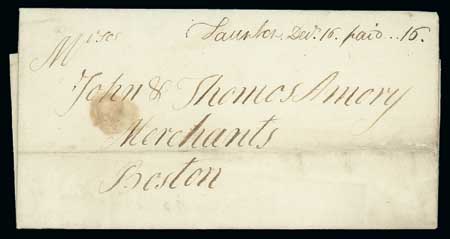 Taunton, Decr. 16. paid..16.
Messrs
John & Thomas Amory
Merchants
Boston